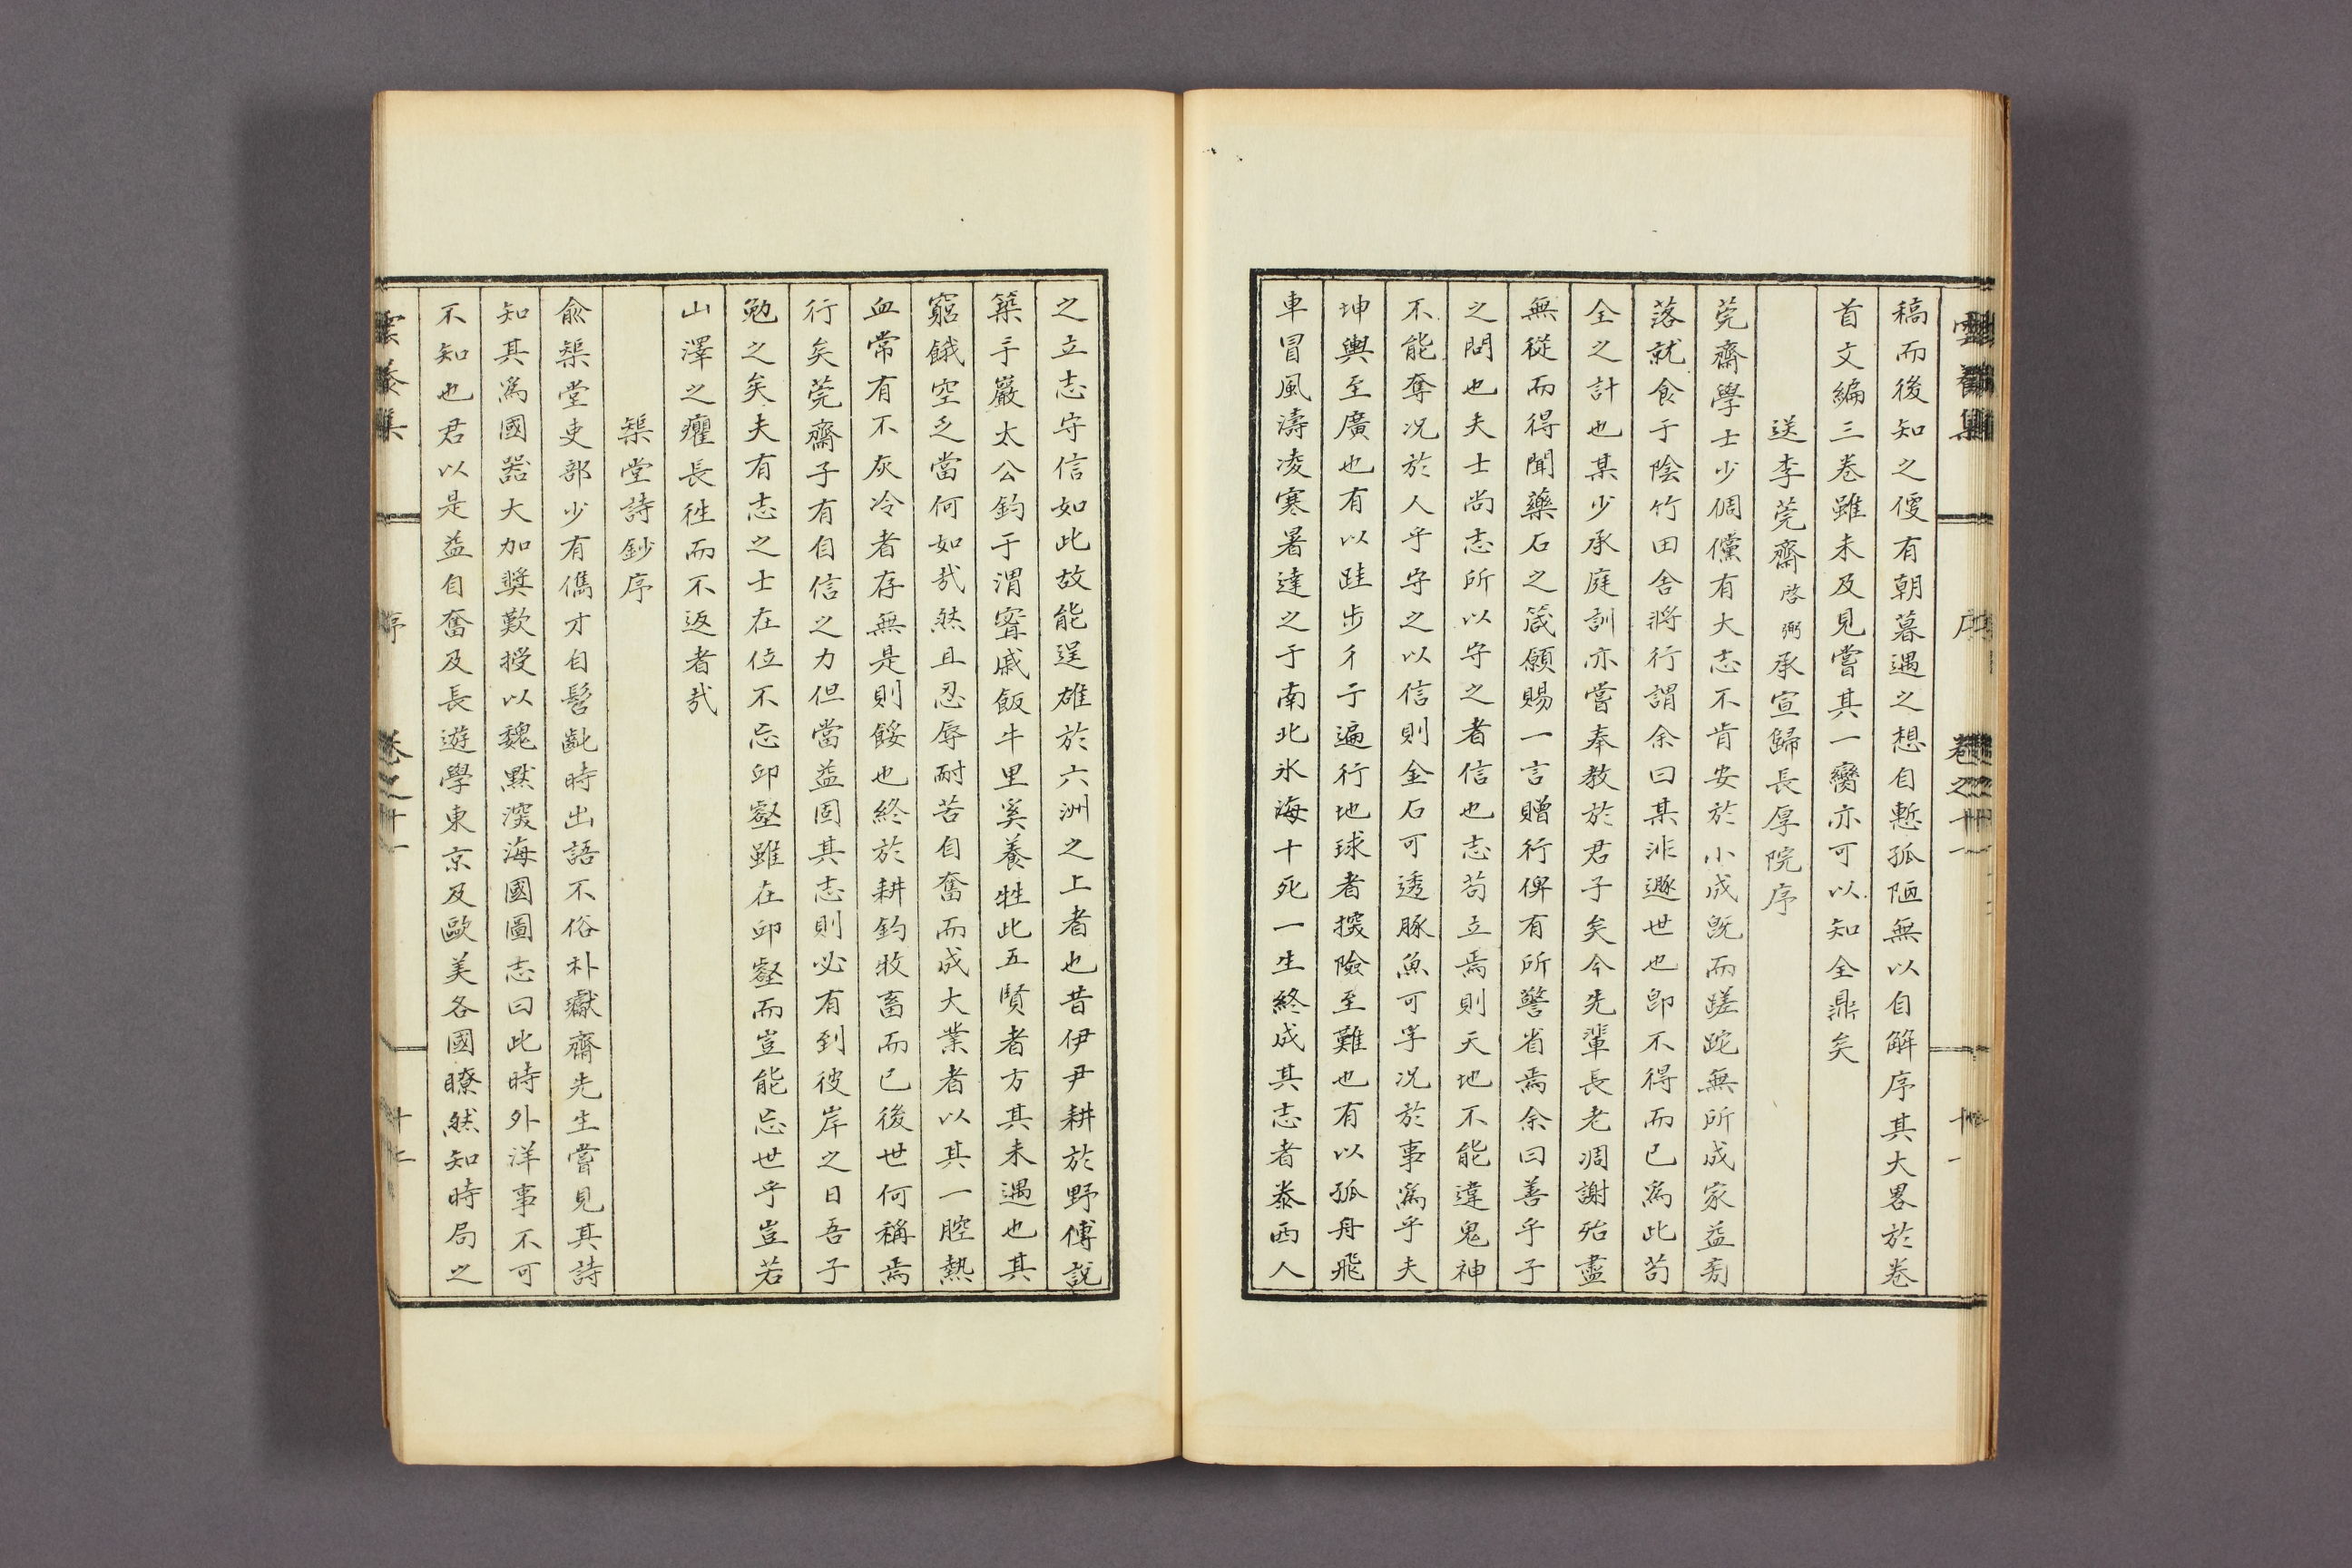 序
稿而後知之優有朝暮遇之想自慙孤陋無以自解序其大畧於卷
首文編三卷雖未及見嘗其一臠亦可以知全鼎矣
送李莞齋啓弼承宣歸長厚院序
莞齋學士少倜儻有大志不肯安於小成旣而蹉跎無所成家益剪
落就食于陰竹田舍將行謂余曰某非遯世也卽不得而已爲此苟
全之計也某少承庭訓亦嘗奉敎於君子矣今先輩長老凋謝殆盡
無從而得聞藥石之箴願賜一言贈行俾有所警省焉余曰善乎子
之問也夫士尚志所以守之者信也志苟立焉則天地不能違鬼神
不能奪况於人乎守之以信則金石可透豚魚可孚况於事爲乎夫
坤輿至廣也有以跬步彳亍遍行地球者探險至難也有以孤舟飛
車冒風濤凌寒暑達之于南北氷海十死一生終成其志者泰西人
之立志守信如此故能逞雄於六洲之上者也昔伊尹耕於野傅說
築于巖太公釣于渭甯戚飯牛里奚養牲此五賢者方其未遇也其
窮餓空乏當何如哉然且忍辱耐苦自奮而成大業者以其一腔熱
血常有不灰冷者存無是則餒也終於耕釣牧畜而已後世何稱焉
行矣莞齋子有自信之力但當益固其志則必有到彼岸之日吾子
勉之矣夫有志之士在位不忘邱壑雖在邱壑而豈能忘世乎豈若
山澤之癯長往而不返者哉
榘堂詩鈔序
兪榘堂吏部少有儁才自髫齔時出語不俗朴瓛齋先生嘗見其詩
知其爲國器大加獎歎授以魏默深海國圖志曰此時外洋事不可
不知也君以是益自奮及長遊學東京及歐美各國瞭然知時局之
雲養集 序 卷之十一 十二